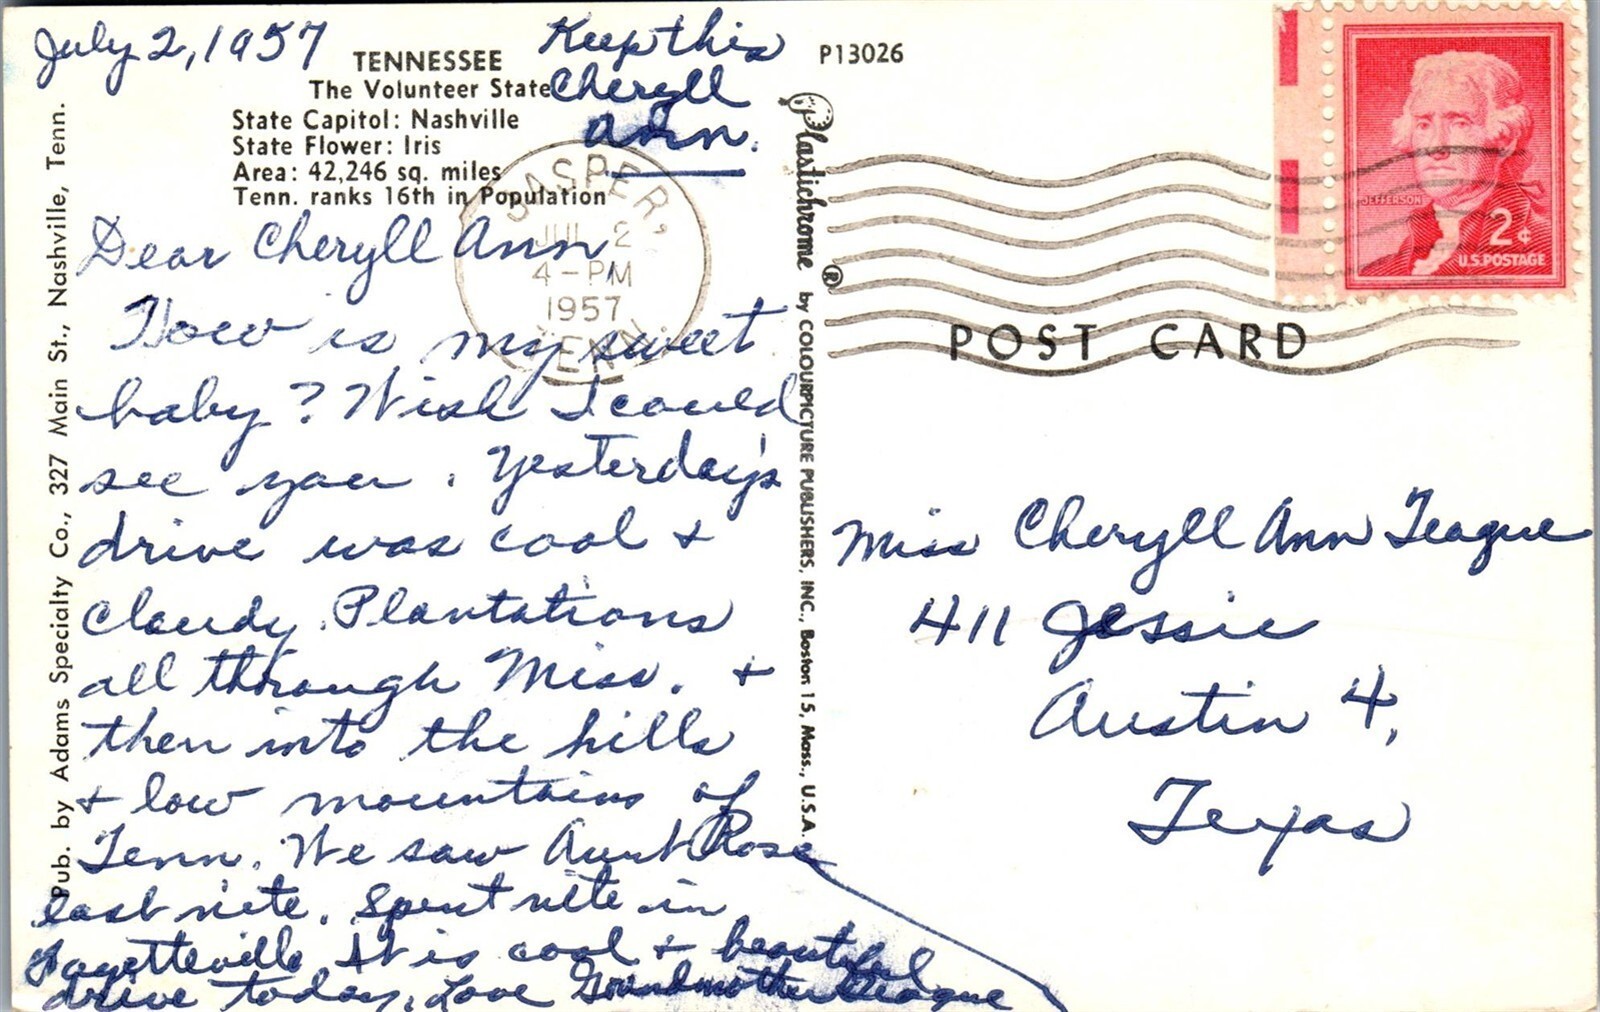 July 2, 1957
TENNESSEE
The Volunteer State
State Capitol: Nashville
State Flower: Iris
Area: 42,246 sq. miles
Tenn. ranks 16th in Population
Keep this
Cheryll
Ann.
P13026
JASPER,
JUL 2
4-PM
1957
TENN.
JEFFERSON
2¢
U.S. POSTAGE
POST CARD
Dear Cheryll Ann
How is my sweet
baby? Wish I could
see you. Yesterday's
drive was cool +
cloudy. Plantations
all through Miss. +
then into the hills
+ low mountains of
Tenn. We saw Aunt Rose
last nite. Spent nite in
Fayetteville It is cool + beautiful
drive today. Love Grandmother Teague
Pub. by Adams Specialty Co., 327 Main St., Nashville, Tenn.
Plastichrome ® by COLOURPICTURE PUBLISHERS, INC., Boston 15, Mass., U.S.A.
Miss Cheryll Ann Teague
411 Jessie
Austin 4,
Texas